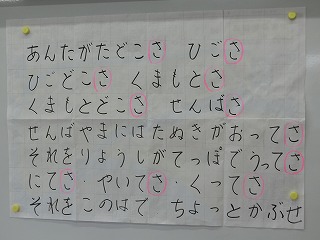 あんたがたどこさ ひごさ
ひごどこさ くまもとさ
くまもとどこさ せんばさ
せんばやまにはたぬきがおってさ
それをりょうしがてっぽでうってさ
にてさ・やいてさ・くってさ
それをこのはで ちょっとかぶせ